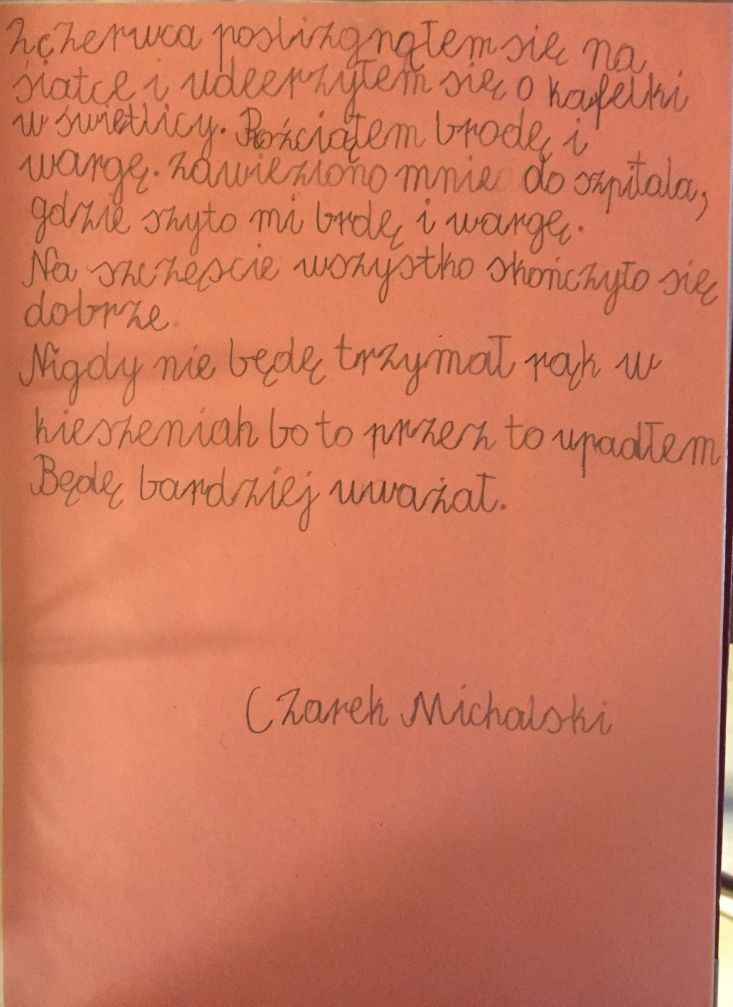 2czerwca poslizgnąłem się na
siatce i udeerzyłem się o kafelki
w świetlicy. Rozciąłem brodę i
wargę. zawieziono mnie do szpitala,
gdzie szyto mi brdę i wargę.
Na szczęście wszystko skończyło się
dobrze.
Nigdy nie będę trzymał rąk w
kieszeniah bo to przez to upadłem
Będę bardziej uważał.
Czarek Michalski